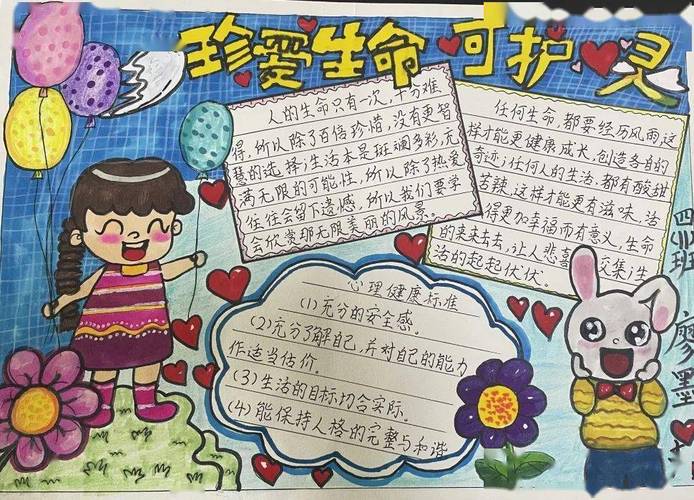 珍爱生命 呵护心灵
人的生命只有一次,十分难
得,所以除了百倍珍惜,没有更智
慧的选择;生活本是斑斓多彩,充
满无限的可能性,所以除了热爱
往往会留下遗憾,所以我们要学
会欣赏那无限美丽的风景。
任何生命,都要经历风雨,这
样才能更健康成长,创造各自的
奇迹;任何人的生活,都有酸甜
苦辣,这样才能更有滋味,活
得更加幸福而有意义,生命
的来来去去,让人悲喜交集;生
活的起起伏伏。
心理健康标准
(1)充分的安全感。
(2)充分了解自己,并对自己的能力
作适当估价。
(3)生活的目标切合实际。
(4)能保持人格的完整与和谐
四班
廖墨